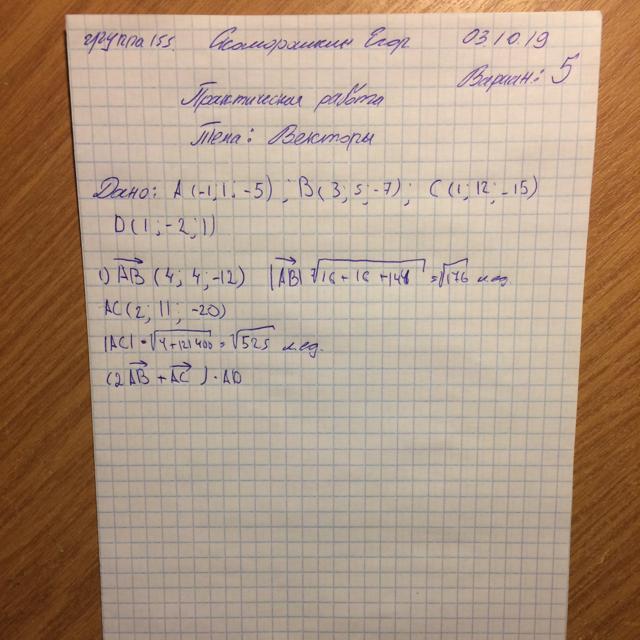 группа 155 Скоморошкин Егор 03.10.19
Вариан: 5
Практическая работа
Тема: Векторы
Дано: A(-1; 1; -5); B(3; 5; -7); C(1; 12; -15)
D(1; -2; 1)
1) AB (4; 4; -12) |AB| = √16 + 16 + 144 = √176 л.ед.
AC(2; 11; -20)
|AC| = √4+121400 = √525 л.ед.
(2AB + AC) · AD